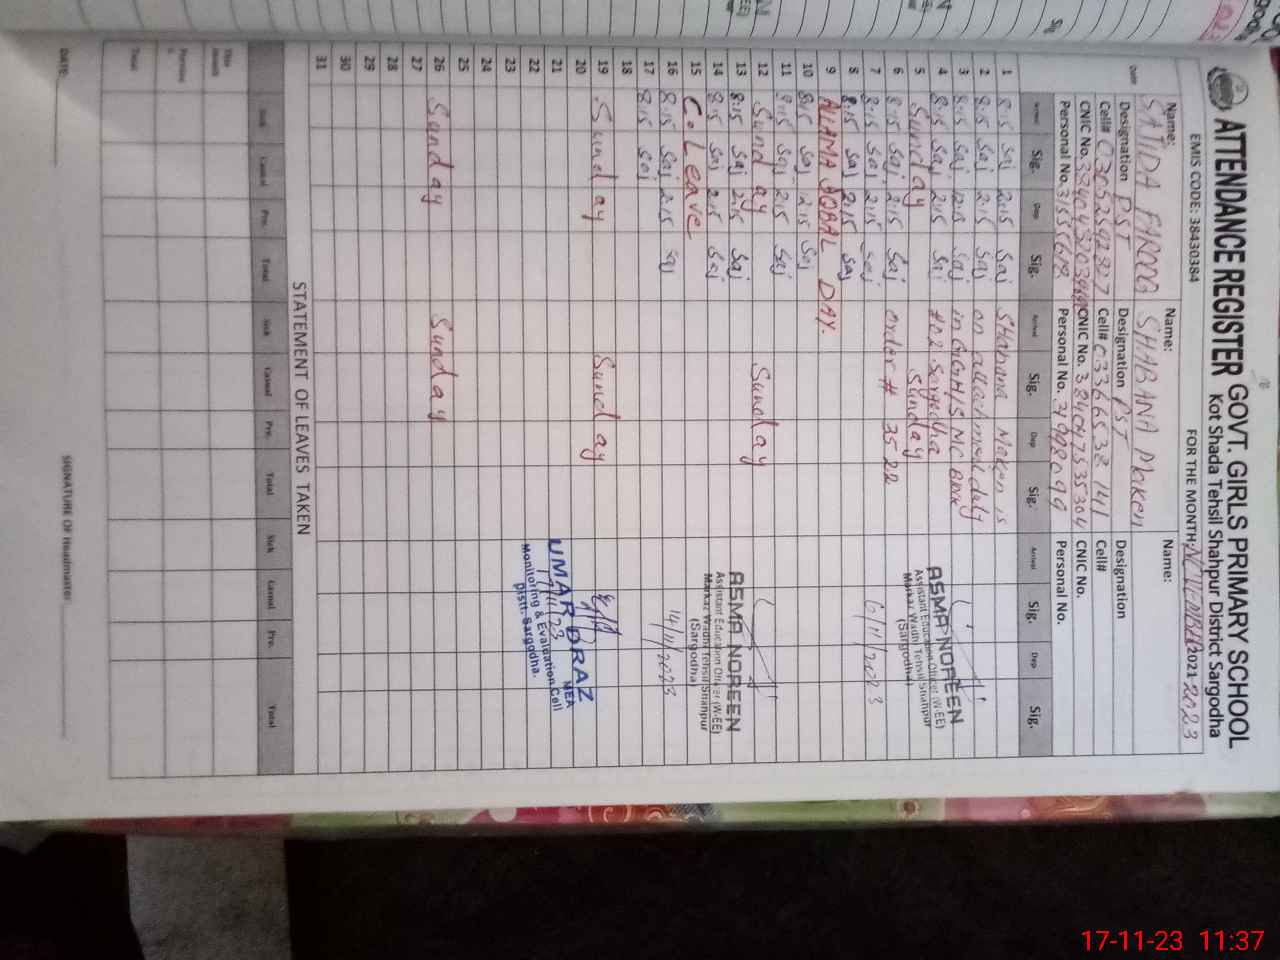 ATTENDANCE REGISTER GOVT. GIRLS PRIMARY SCHOOL
Kot Shada Tehsil Shahpur District Sargodha
EMIS CODE: 38430384 FOR THE MONTH: NOVEMBER 2021 2023
Name: Name: Name:
SAJIDA FAROOQ SHABANA Maken
Designation PST Designation PST Designation
Cell# Cell# Cell#
CNIC No. CNIC No. CNIC No.
Personal No. Personal No. Personal No.
Date Arrival Sig. Dep Sig. Arrival Sig. Dep Sig. Arrival Sig. Dep Sig.
1 8:15 Saj 2:15 Saj Shabana Maken is
2 8:15 Saj 2:15 Saj on allachmed duty
3 8:15 Saj 12:15 Saj in GGHS MC
4 8:15 Saj 2:15 Saj #02 Sargodha
5 Sunday Sunday
6 8:15 Saj 2:15 Saj order # 3522
ASMA NOREEN
Assistant Education Officer (W-EE)
Markaz Wadhi Tehsil Shahpur
(Sargodha)
7 8:15 Saj 2:15 Saj 6/11/2023
8 8:15 Saj 2:15 Saj
9 ALLAMA IQBAL DAY.
10 8:15 Saj 12:15 Saj
11 8:15 Saj 2:15 Saj
12 Sunday Sunday
13 8:15 Saj 2:15 Saj
14 8:15 Saj 2:15 Saj
ASMA NOREEN
Assistant Education Officer (W-EE)
Markaz Wadhi Tehsil Shahpur
(Sargodha)
15 C. Leave
16 8:15 Saj 2:15 Saj 14/11/2023
17 8:15 Saj
18
19 Sunday Sunday
20
21
UMAR DRAZ
MEA
17/11/23
Monitoring & Evaluation Cell
Distt. Sargodha.
22
23
24
25
26 Sunday Sunday
27
28
29
30
31
STATEMENT OF LEAVES TAKEN
Sick Casual Pre. Total Sick Casual Pre. Total Sick Casual Pre. Total
This month
Previous
Total
DATE: SIGNATURE OF Headmaster:
17-11-23 11:37